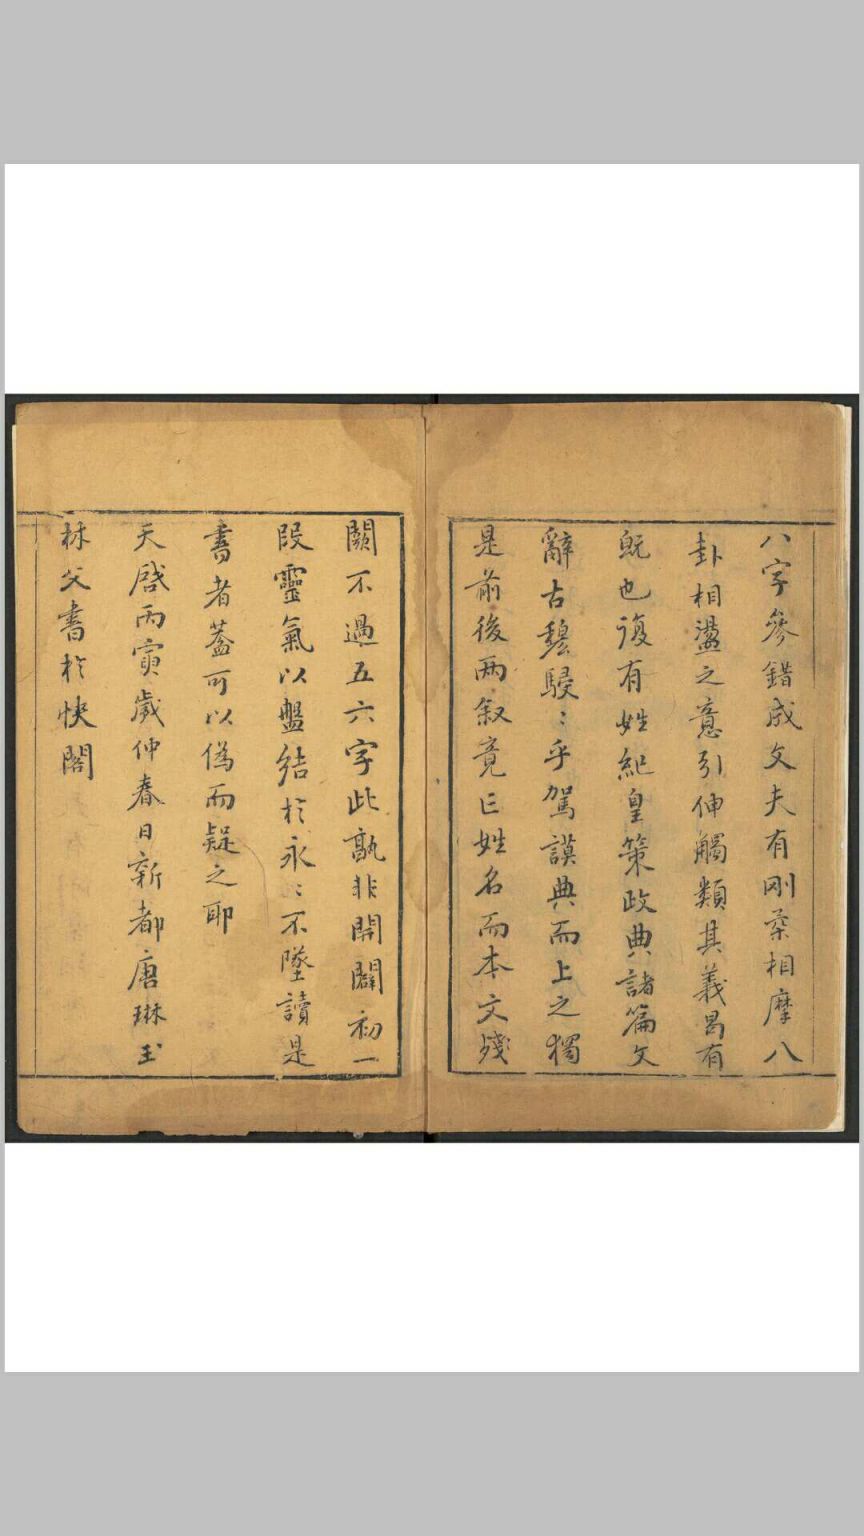 八字參錯成文夫有剛柔相摩八
卦相盪之意引伸觸類其義曷有
旣也復有姓紀皇策政典諸篇文
辭古穆駸〻乎駕謨典而上之獨
是前後兩叙竟亡姓名而本文殘
闕不過五六字此孰非開闢初一
段靈氣以盤結於永〻不墜讀是
書者蓋可以僞而疑之耶
天啓丙寅歲仲春日新都唐琳玉
林父書於快閣